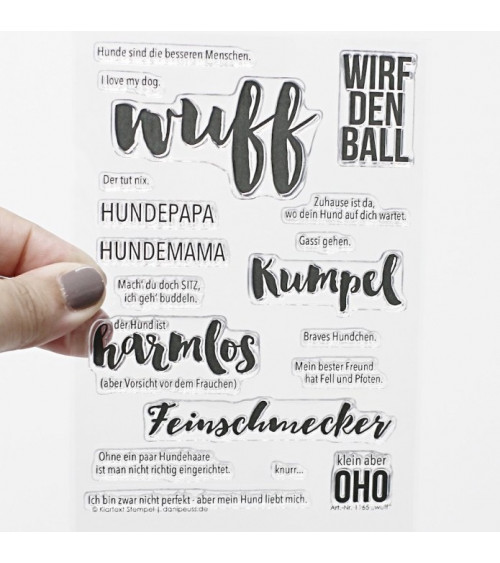 Hunde sind die besseren Menschen.
I love my dog.
wuff
WIRF
DEN
BALL
Der tut nix.
HUNDEPAPA
Zuhause ist da,
wo dein Hund auf dich wartet.
HUNDEMAMA
Gassi gehen.
Kumpel
Mach' du doch SITZ,
ich geh' buddeln.
der Hund ist
harmlos
(aber Vorsicht vor dem Frauchen)
Braves Hundchen.
Mein bester Freund
hat Fell und Pfoten.
Feinschmecker
Ohne ein paar Hundehaare
ist man nicht richtig eingerichtet.
knurr...
klein aber
OHO
Ich bin zwar nicht perfekt - aber mein Hund liebt mich.
© Klartext Stempel | danipeuss.de
Art.-Nr. 1165 „wuff"